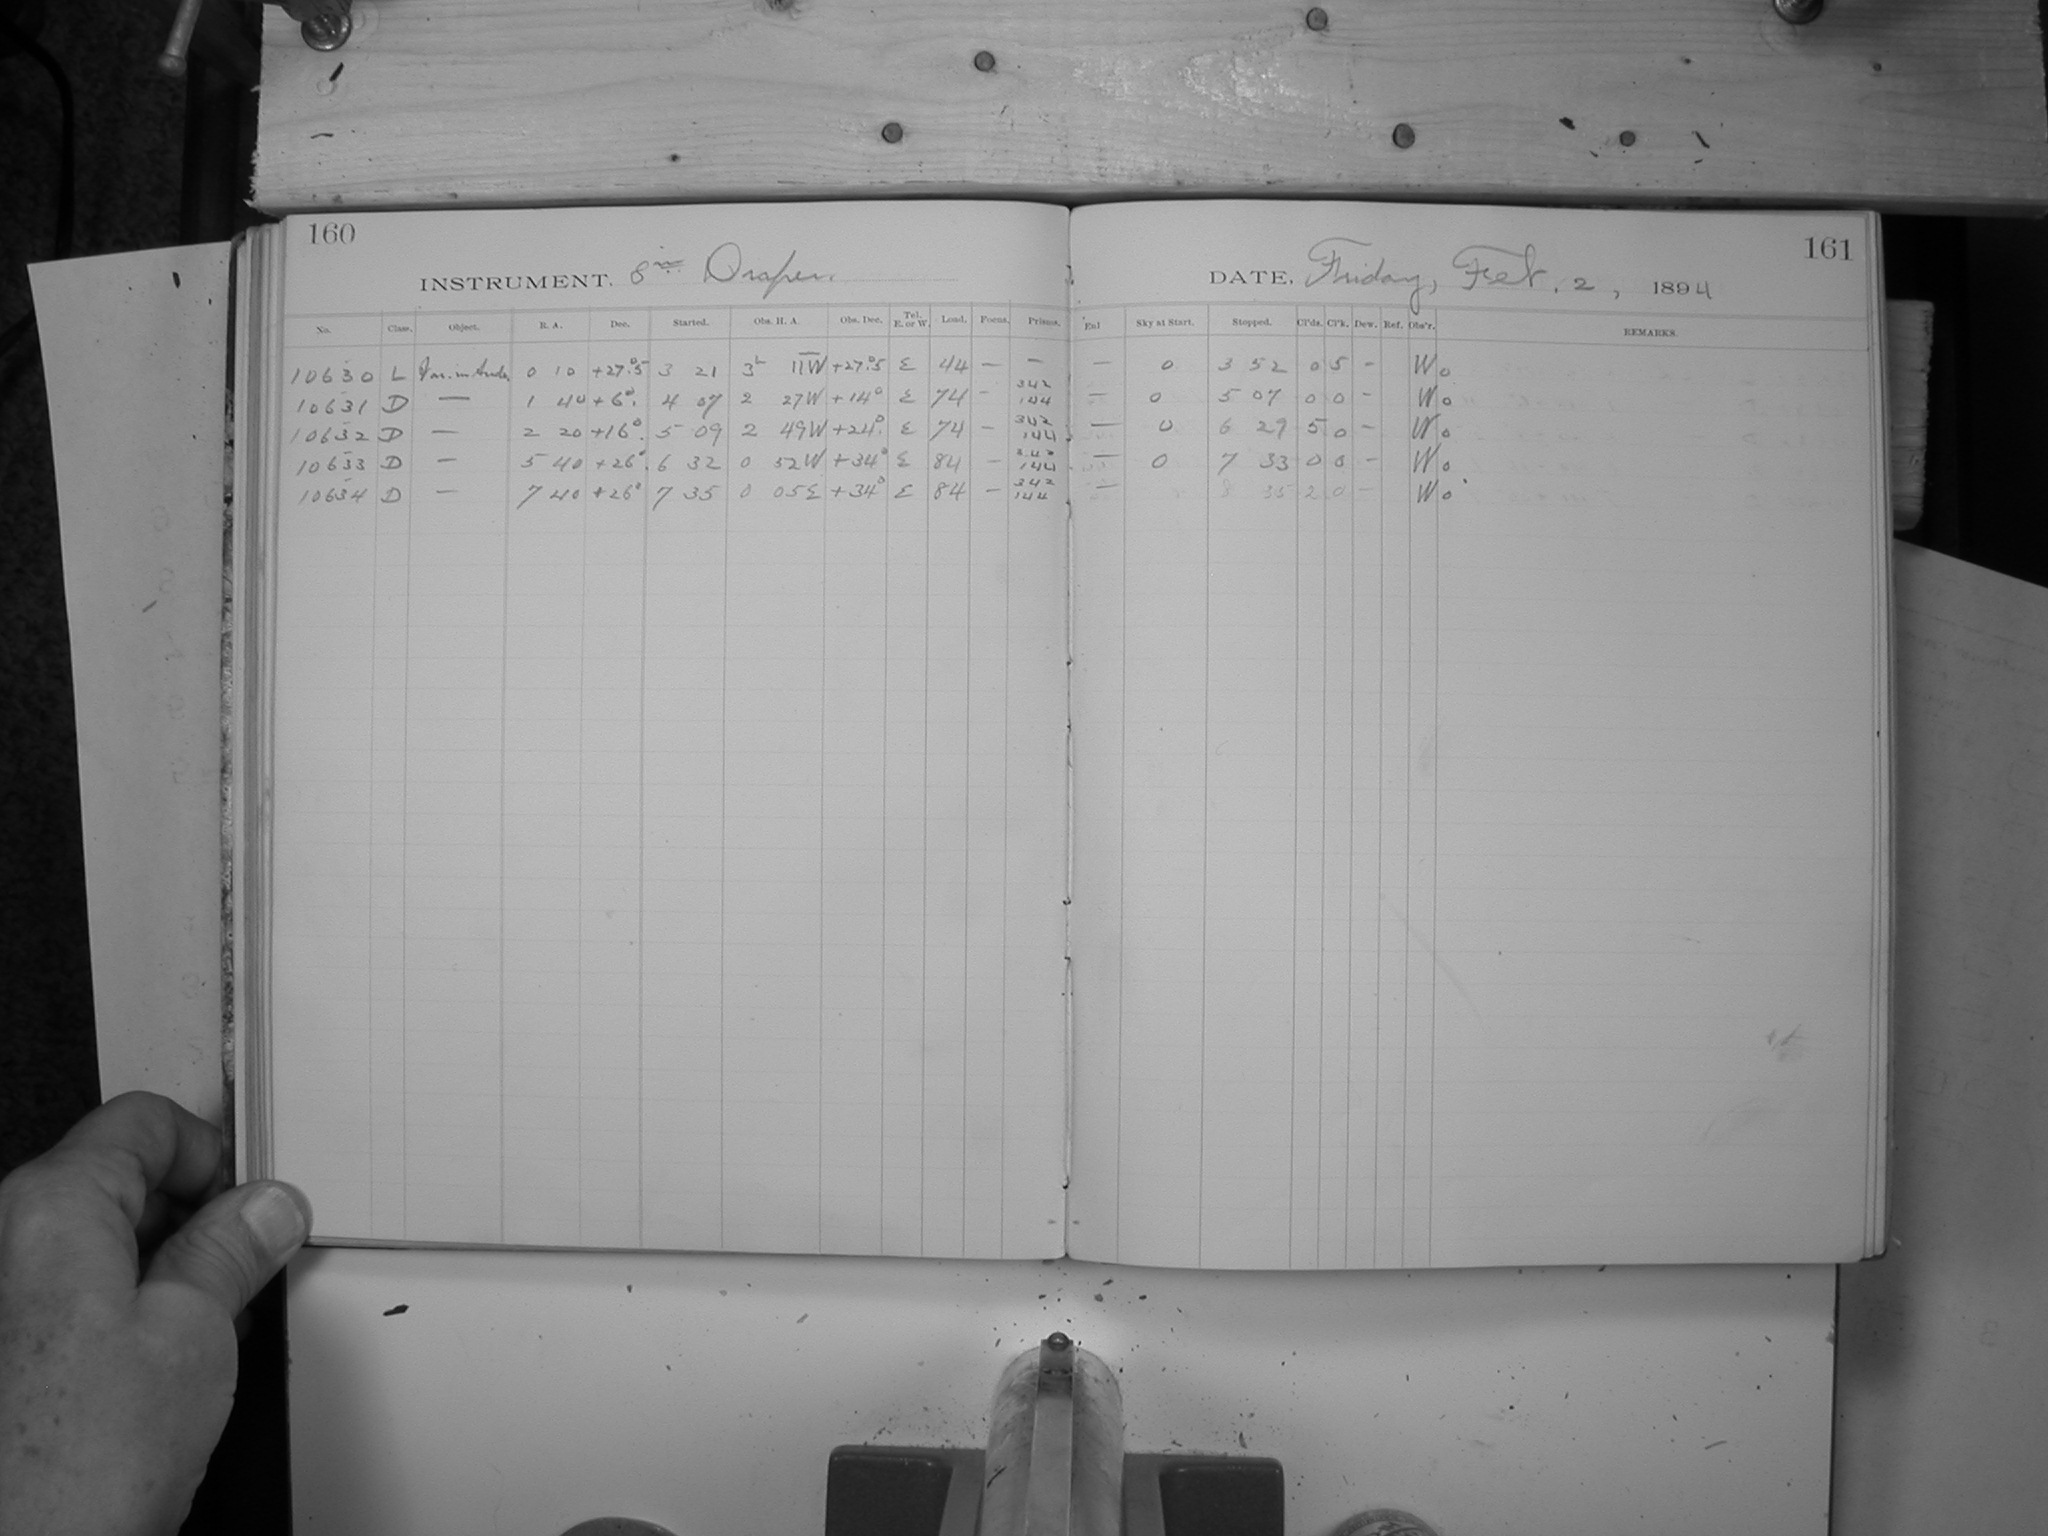 160
INSTRUMENT. 8 in. Draper.
No. Class. Object. R. A. Dec. Started. Obs. H. A. Obs. Dec. Tel. E. or W. Load. Focus. Prisms.
10630 L Var. in Andr. 0 10 +27°.5 3 21 3h 11W +27°.5 E 44 — —
10631 D — 1 40 +6°. 4 07 2 27W +14° E 74 - 342 144
10632 D — 2 20 +16°. 5 09 2 49W +24°. E 74 - 342 144
10633 D — 5 40 +26°. 6 32 0 52W +34° E 84 - 342 144
10634 D — 7 40 +26° 7 35 0 05E +34° E 84 - 342 144
161
DATE, Friday, Feb. 2, 1894
Enl Sky at Start. Stopped. Cl'ds. Cl'k. Dew. Ref. Obs'r. REMARKS.
— 0 3 52 0 5 - W o
— 0 5 07 0 0 - W o
— 0 6 29 5 0 - W o
— 0 7 33 0 0 - W o
— 8 35 2 0 - W o